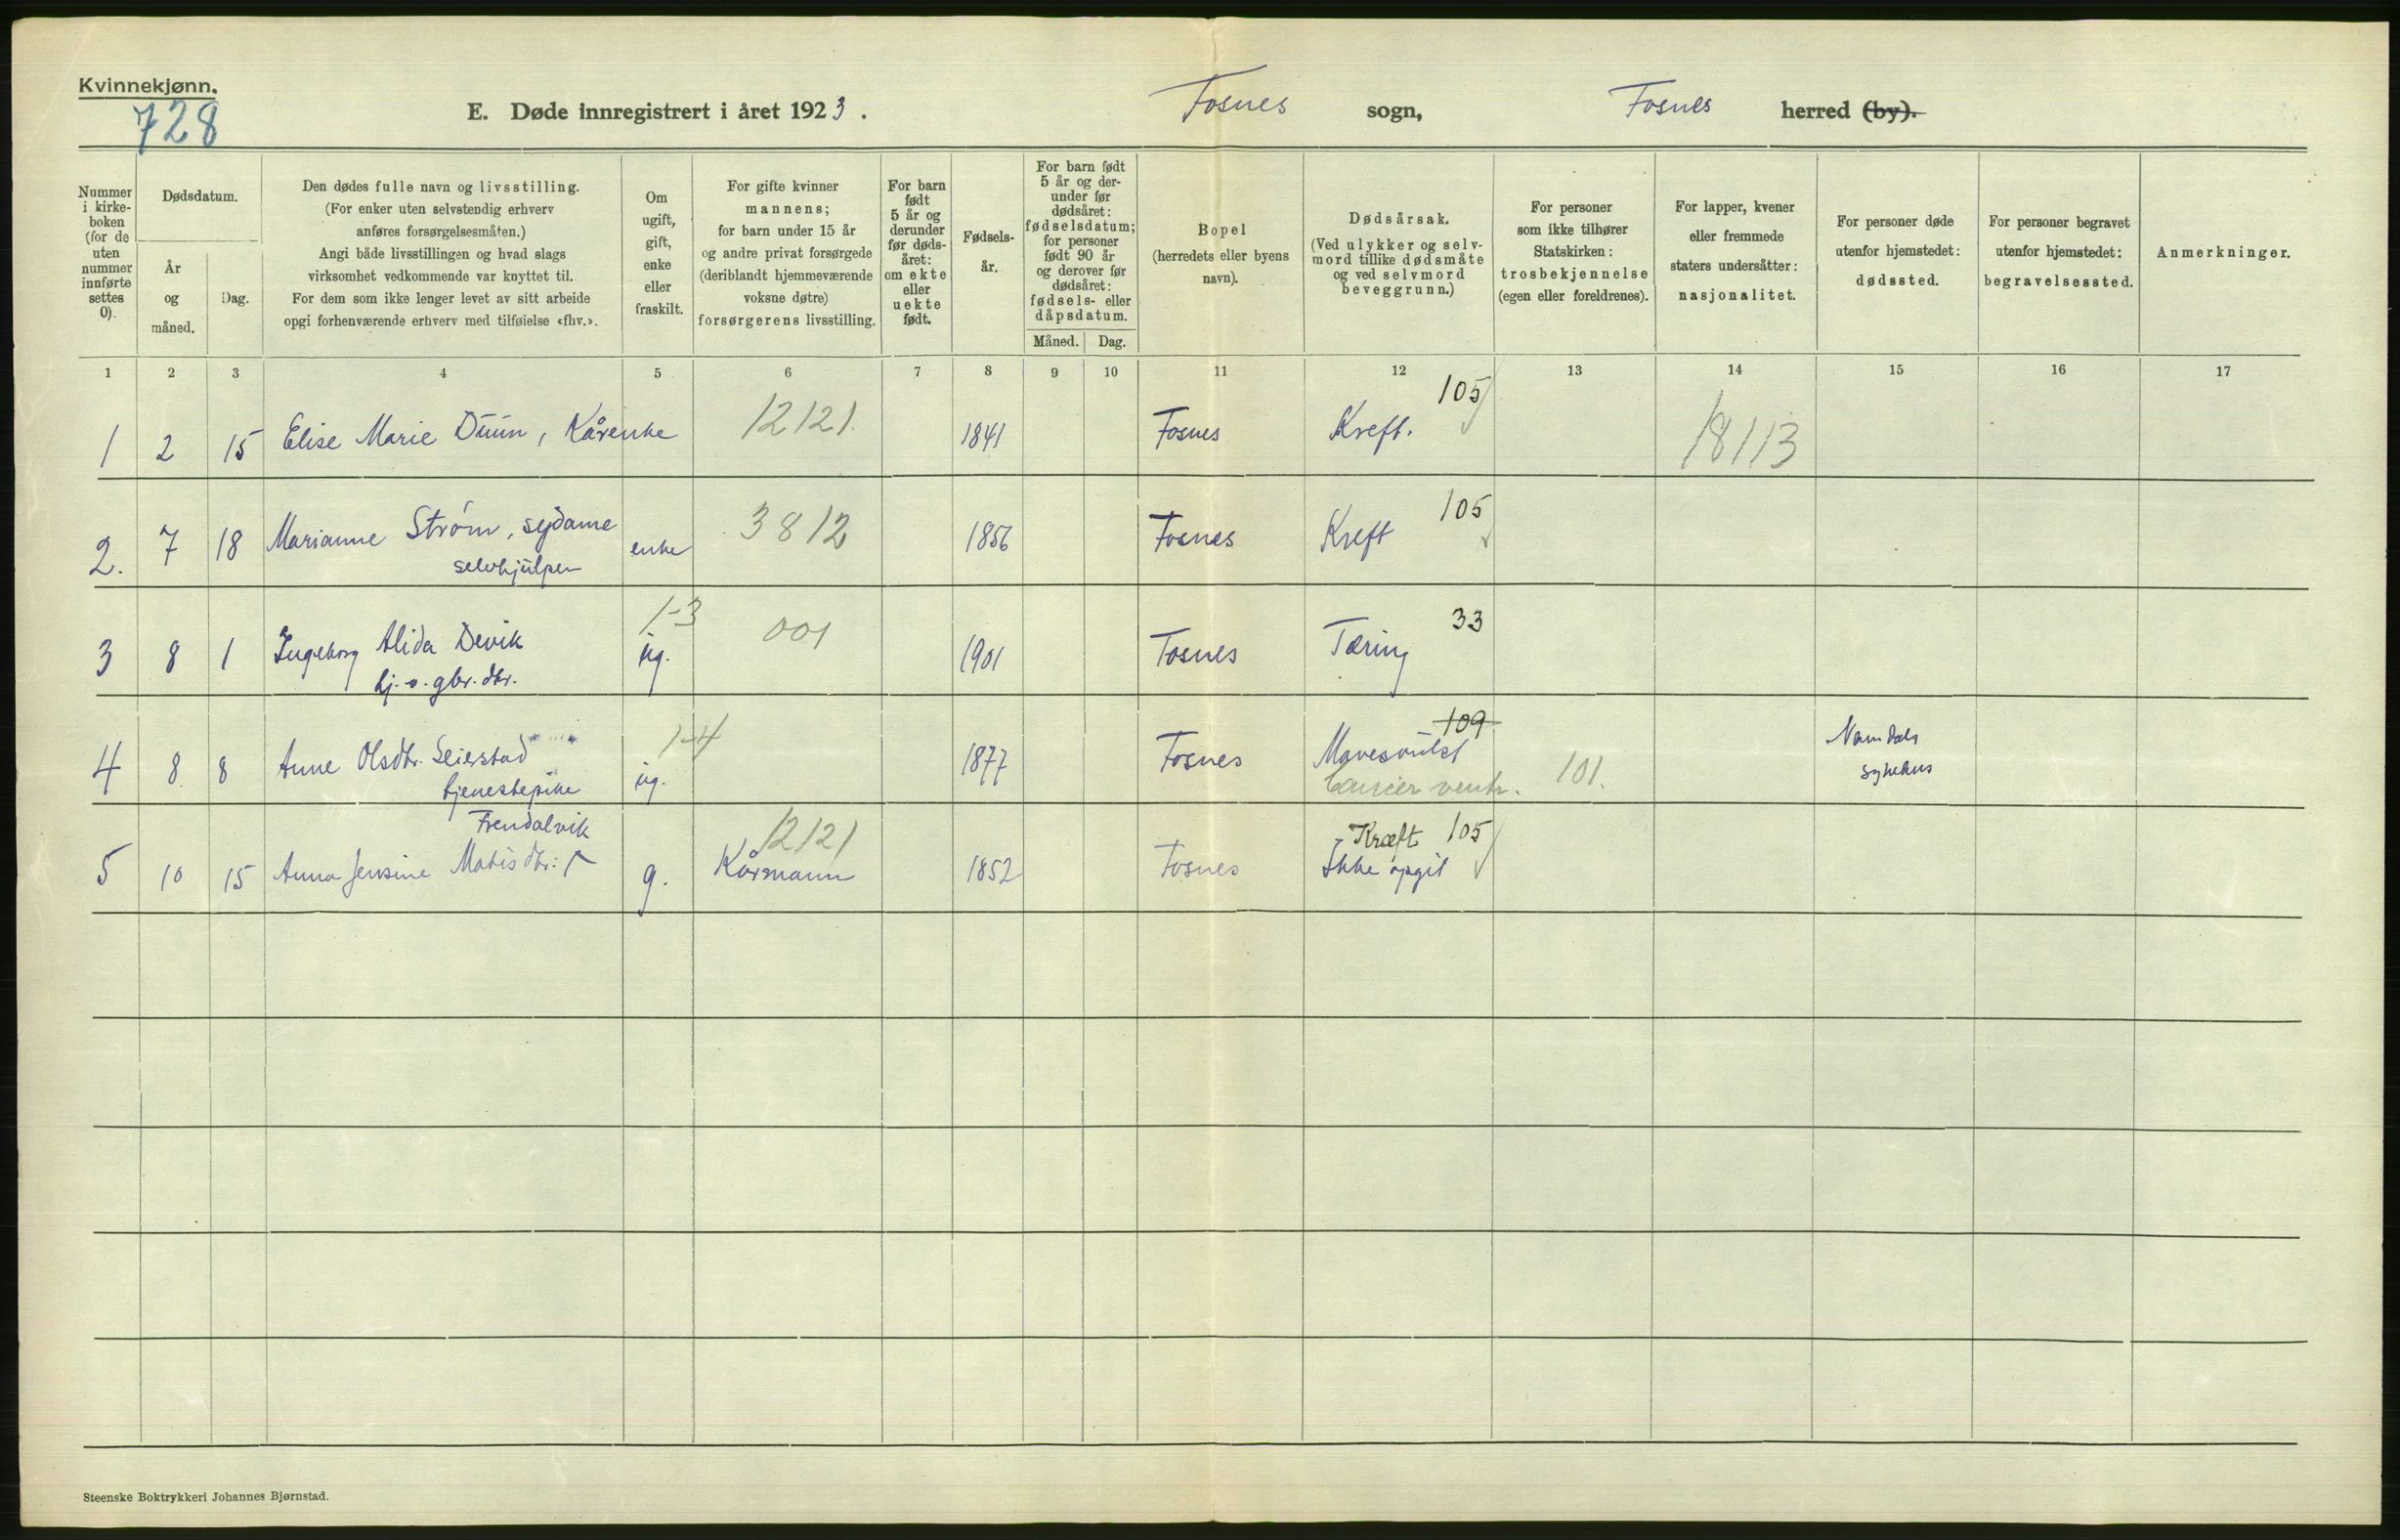 Kvinnekjønn.
728
E. Døde innregistrert i året 1923.
Fosnes sogn, Fosnes herred (by).
Nummer
i kirke-
boken
(for de
uten
nummer
innførte
settes
0).
Dødsdatum.
År
og
måned.
Dag.
Den dødes fulle navn og livsstilling.
(For enker uten selvstendig erhverv
anføres forsørgelsesmåten.)
Angi både livsstillingen og hvad slags
virksomhet vedkommende var knyttet til.
For dem som ikke lenger levet av sitt arbeide
opgi forhenværende erhverv med tilføielse «fhv.».
Om
ugift,
gift,
enke
eller
fraskilt.
For gifte kvinner
mannens;
for barn under 15 år
og andre privat forsørgede
(deriblandt hjemmeværende
voksne døtre)
forsørgerens livsstilling.
For barn
født
5 år og
derunder
før døds-
året:
om ekte
eller
uekte
født.
Fødsels-
år.
For barn født
5 år og der-
under før
dødsåret:
fødselsdatum;
for personer
født 90 år
og derover før
dødsåret:
fødsels- eller
dåpsdatum.
Måned. Dag.
Bopel
(herredets eller byens
navn).
Dødsårsak.
(Ved ulykker og selv-
mord tillike dødsmåte
og ved selvmord
beveggrunn.)
For personer
som ikke tilhører
Statskirken:
trosbekjennelse
(egen eller foreldrenes).
For lapper, kvener
eller fremmede
staters undersåtter:
nasjonalitet.
For personer døde
utenfor hjemstedet:
dødssted.
For personer begravet
utenfor hjemstedet:
begravelsessted.
Anmerkninger.
1 2 3 4 5 6 7 8 9 10 11 12 13 14 15 16 17
105
1 2 15 Elise Marie Duun, Kårenke 12121. 1841 Fosnes Kreft. 18113
105
2. 7 18 Marianne Strøm, sydame enke 3812 1856 Fosnes Kreft
selvhjulpen
1-3 001 33
3 8 1 Ingeborg Alida Devik ug. 1901 Fosnes Tæring
hj. o. gbr. dtr.
1-4 109
4 8 8 Anne Olsdtr. Seierstad ug. 1877 Fosnes Mavesvulst Namdals
tjenestepike Cancer ventr. 101. sykehus
Frendalvik 12121 Kræft 105
5 10 15 Anna Jensine Matisdtr: g. Kårmann 1852 Fosnes Ikke opgit
Steenske Boktrykkeri Johannes Bjørnstad.